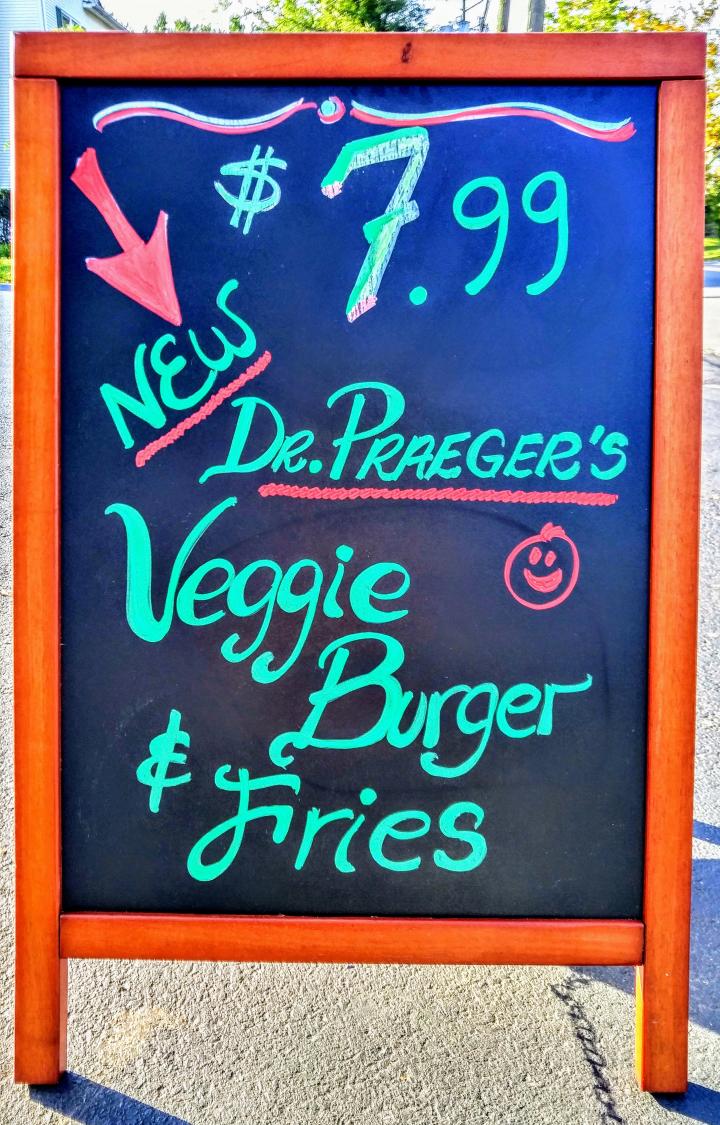 $7.99
NEW
DR. PRAEGER'S
Veggie
Burger
& Fries